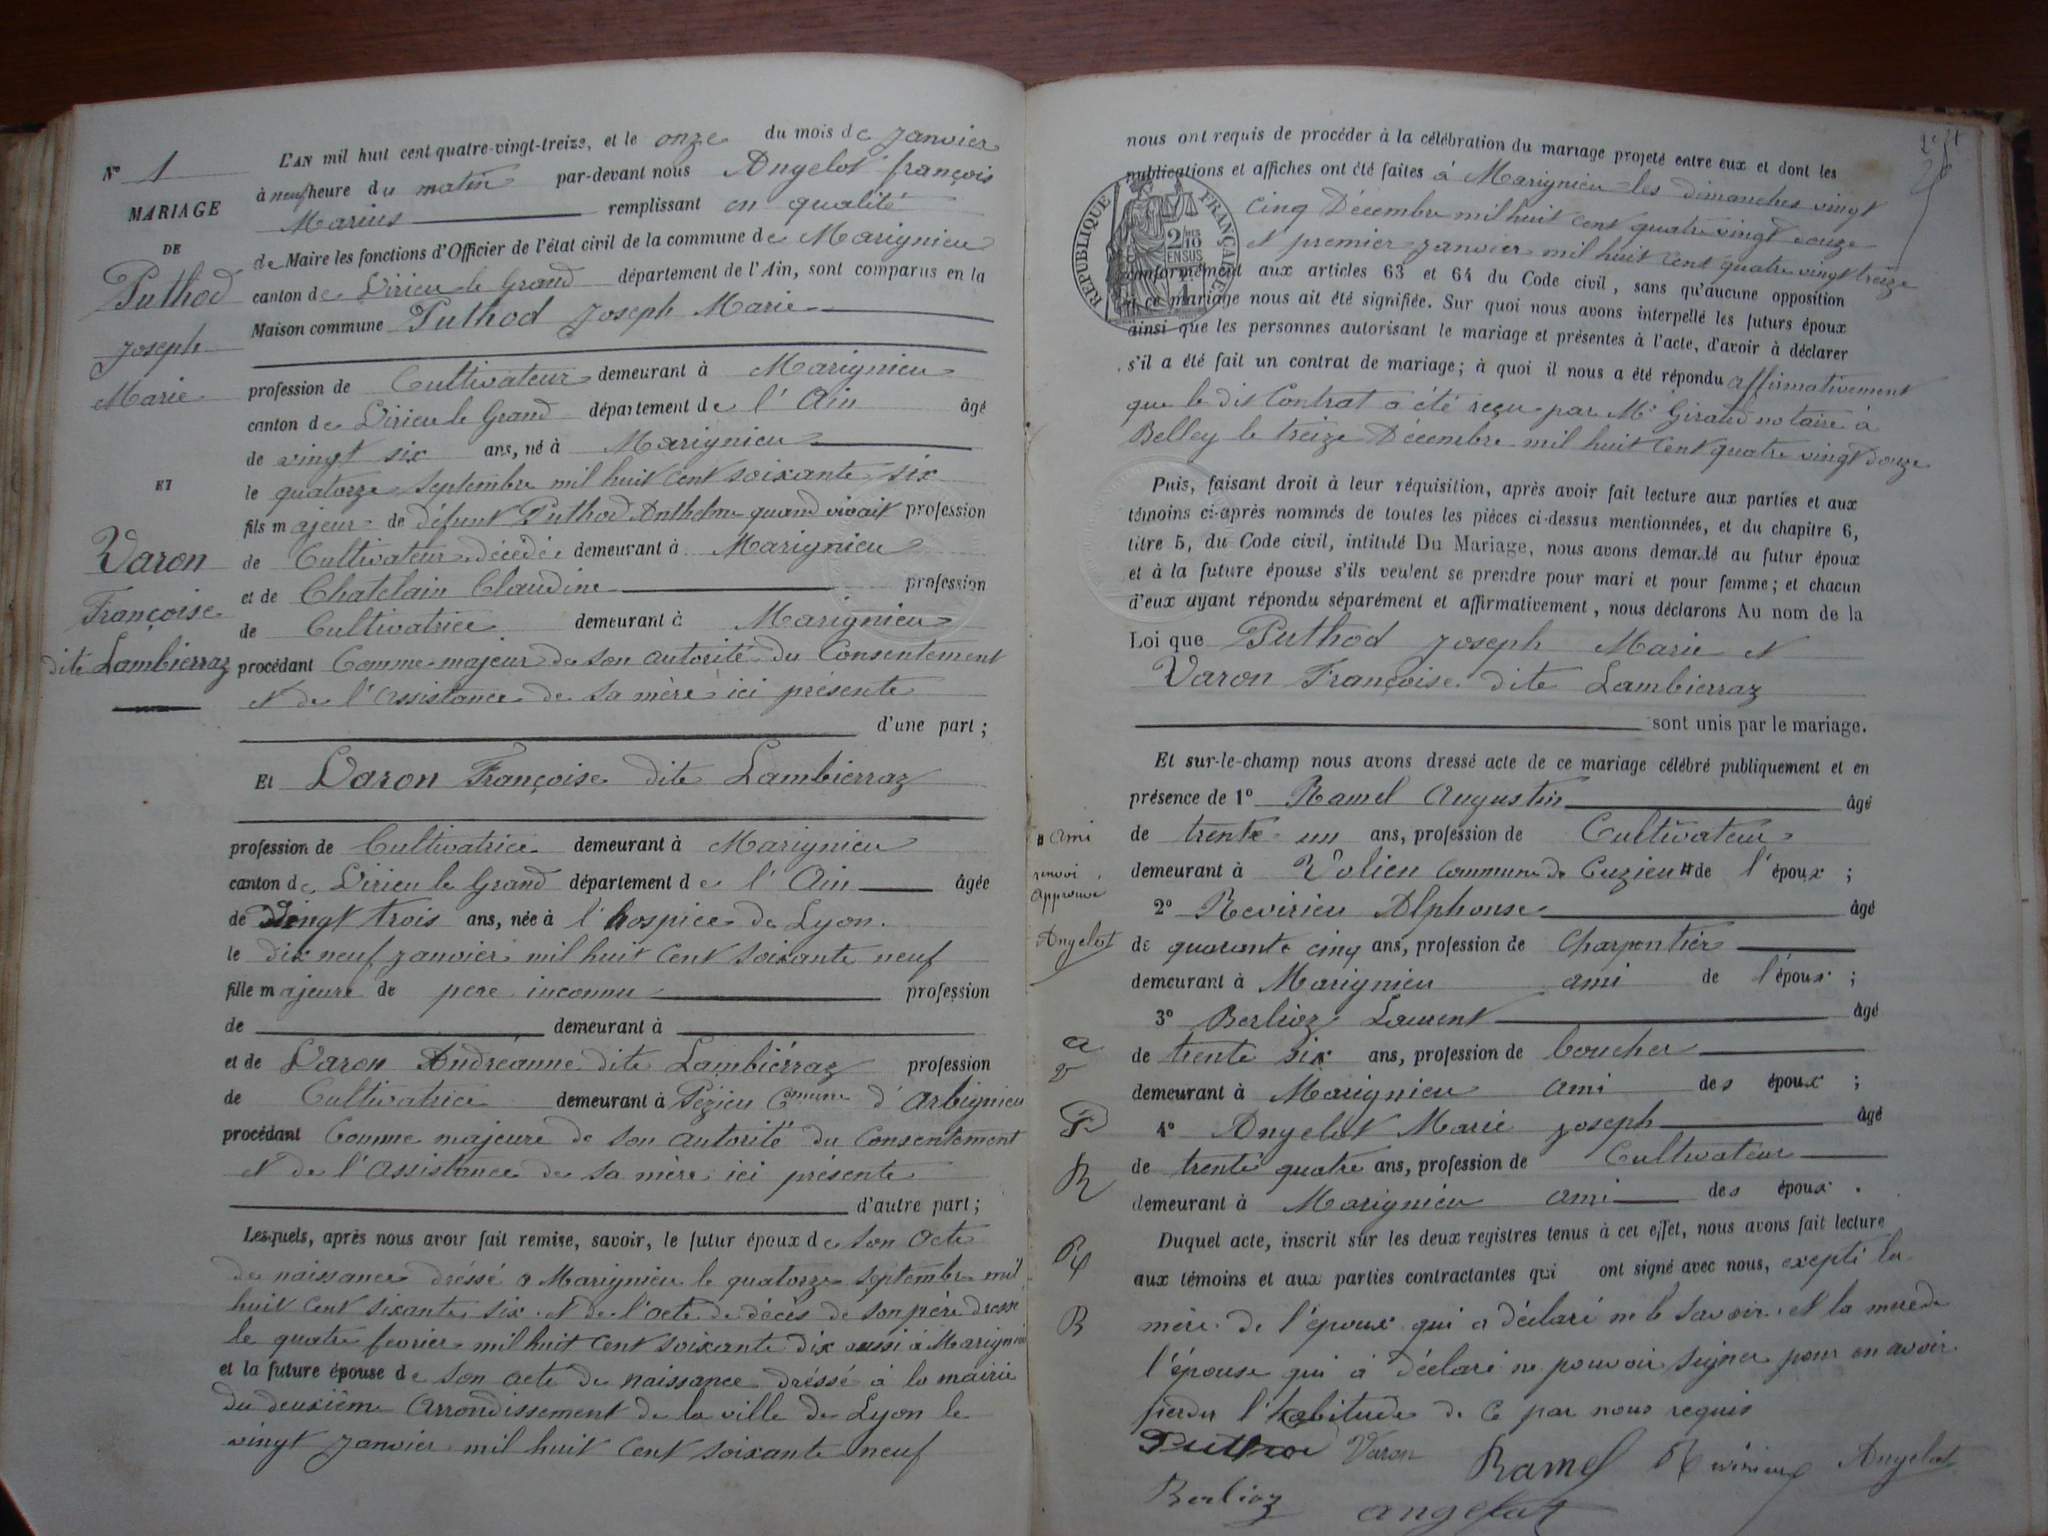 N° 1
MARIAGE
DE
Puthod
Joseph
Marie
ET
Varon
Françoise
dite Lambierraz
L'AN mil huit cent quatre-vingt-treize, et le onze du mois de Janvier
à neuf heure du matin par-devant nous Angelot françois
Marius remplissant en qualité
de Maire les fonctions d'Officier de l'état civil de la commune de Marignieu
canton de Virieu le Grand département de l'Ain, sont comparus en la
Maison commune Puthod Joseph Marie
profession de Cultivateur demeurant à Marignieu
canton de Virieu le Grand département de l'Ain âgé
de vingt six ans, né à Marignieu
le quatorze Septembre mil huit cent soixante six
fils majeur de défunt Puthod Anthelme quand vivait profession
de Cultivateur décédé demeurant à Marignieu
et de Chatelain Claudine profession
de Cultivatrice demeurant à Marignieu
procédant Comme majeur de son autorité du Consentement
et de l'assistance de sa mère ici présente
d'une part ;
Et Varon Françoise dite Lambierraz
profession de Cultivatrice demeurant à Marignieu
canton de Virieu le Grand département de l'Ain âgée
de vingt trois ans, née à l'hospice de Lyon.
le dix neuf janvier mil huit cent soixante neuf
fille majeure de pere inconnu profession
de demeurant à
et de Varon Andréanne dite Lambiérraz profession
de Cultivatrice demeurant à Pézieu Cmune d'Arbignieu
procédant Comme majeure de son autorité du Consentement
et de l'Assistance de sa mère ici présente
d'autre part ;
Lesquels, après nous avoir fait remise, savoir, le futur époux de son Acte
de naissance dréssé à Marignieu le quatorze Septembre mil
huit cent sixante six et de l'acte de décès de son père dressé
le quatre fevrier mil huit cent soixante dix aussi à Marignieu
et la future épouse de son acte de naissance dréssé à la mairie
du deuxième Arrondissement de la ville de Lyon le
vingt Janvier mil huit cent soixante neuf
nous ont requis de procéder à la célébration du mariage projeté entre eux et dont les
publications et affiches ont été faites à Marignieu les dimanches vingt
cinq Décembre mil huit cent quatre vingt douze
et premier janvier mil huit cent quatre vingt treize
conformément aux articles 63 et 64 du Code civil, sans qu'aucune opposition
à ce mariage nous ait été signifiée. Sur quoi nous avons interpellé les futurs époux
ainsi que les personnes autorisant le mariage et présentes à l'acte, d'avoir à déclarer
s'il a été fait un contrat de mariage ; à quoi il nous a été répondu affirmativement
que le dit Contrat a été reçu par Me Giraud notaire à
Belley le treize Décembre mil huit cent quatre vingt douze
RÉPUBLIQUE FRANÇAISE
2/10 EN SUS
Puis, faisant droit à leur réquisition, après avoir fait lecture aux parties et aux
témoins ci-après nommés de toutes les pièces ci-dessus mentionnées, et du chapitre 6,
titre 5, du Code civil, intitulé Du Mariage, nous avons demandé au futur époux
et à la future épouse s'ils veulent se prendre pour mari et pour femme ; et chacun
d'eux ayant répondu séparément et affirmativement, nous déclarons Au nom de la
Loi que Puthod Joseph Marie et
Varon Françoise dite Lambierraz
sont unis par le mariage.
Et sur-le-champ nous avons dressé acte de ce mariage célébré publiquement et en
présence de 1° Ramel Augustin âgé
de trente un ans, profession de Cultivateur
demeurant à Volieu Commune de Cuzieu # de l'époux ;
# ami
renvoi
approuvé
Angelot
2° Revirieu Alphonse âgé
de quarante cinq ans, profession de Charpentier
demeurant à Marignieu ami de l'époux ;
3° Berlioz Laurent âgé
de trente six ans, profession de boucher
demeurant à Marignieu ami des époux ;
4° Angelot Marie Joseph âgé
de trente quatre ans, profession de Cultivateur
demeurant à Marignieu ami des époux.
Duquel acte, inscrit sur les deux registres tenus à cet effet, nous avons fait lecture
aux témoins et aux parties contractantes qui ont signé avec nous, exepté la
mère de l'époux qui a déclaré ne le savoir et la mere de
l'épouse qui à déclaré ne pouvoir signer pour en avoir
perdu l'habitude de ce par nous requis
Puthod Varon Ramel Révirieux Angelot
Berlioz angelot